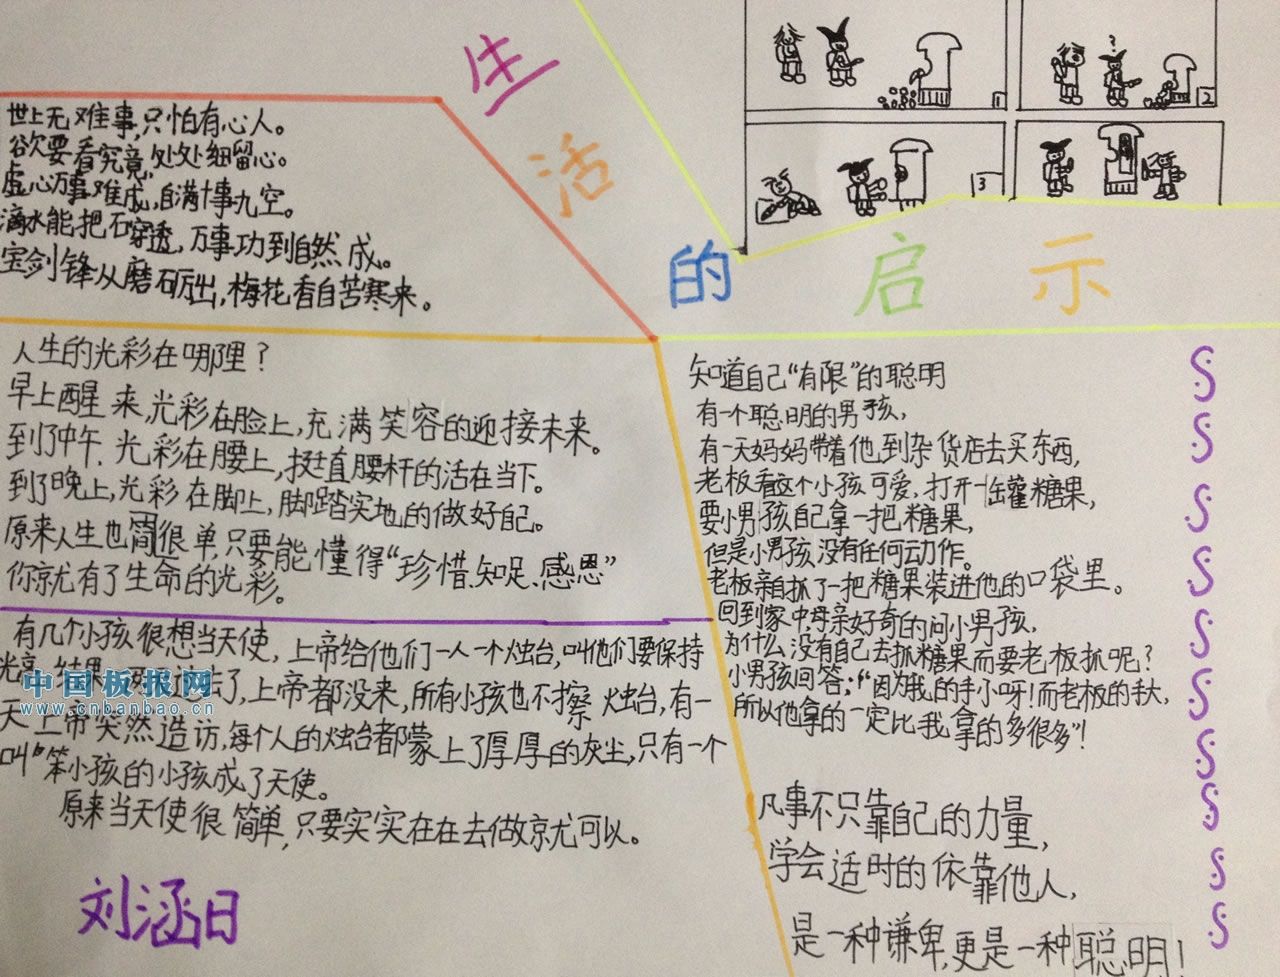 生活的启示
1
2
3
世上无难事,只怕有心人。
欲要看究竟,处处细留心。
虚心万事难成,自满十事九空。
滴水能把石穿透,万事功到自然成。
宝剑锋从磨砺出,梅花香自苦寒来。
人生的光彩在哪里?
早上醒来,光彩在脸上,充满笑容的迎接未来。
到了中午,光彩在腰上,挺直腰杆的活在当下。
到了晚上,光彩在脚上,脚踏实地的做好自己。
原来人生也简很单,只要能懂得“珍惜、知足、感恩”
你就有了生命的光彩。
有几个小孩很想当天使,上帝给他们一人一个烛台,叫他们要保持
光亮,结果一天天过去了,上帝都没来,所有小孩也不擦烛台,有一
天上帝突然造访,每个人的烛台都蒙上了厚厚的灰尘,只有一个
叫“笨小孩的小孩成了天使。
原来当天使很简单,只要实实在在去做就可以。
刘涵日
知道自己“有限”的聪明
有一个聪明的男孩,
有一天妈妈带着他到杂货店去买东西,
老板看这个小孩可爱,打开一缶罐糖果,
要小男孩自己拿一把糖果,
但是小男孩没有任何动作。
老板亲自抓了一把糖果装进他的口袋里。
回到家中,母亲好奇的问小男孩,
为什么没有自己去抓糖果而要老板抓呢?
小男孩回答:“因为我的手小呀!而老板的手大,
所以他拿的一定比我拿的多很多”!
凡事不只靠自己的力量,
学会适时的依靠他人,
是一种谦卑,更是一种聪明!
中国板报网
www.cnbanbao.cn